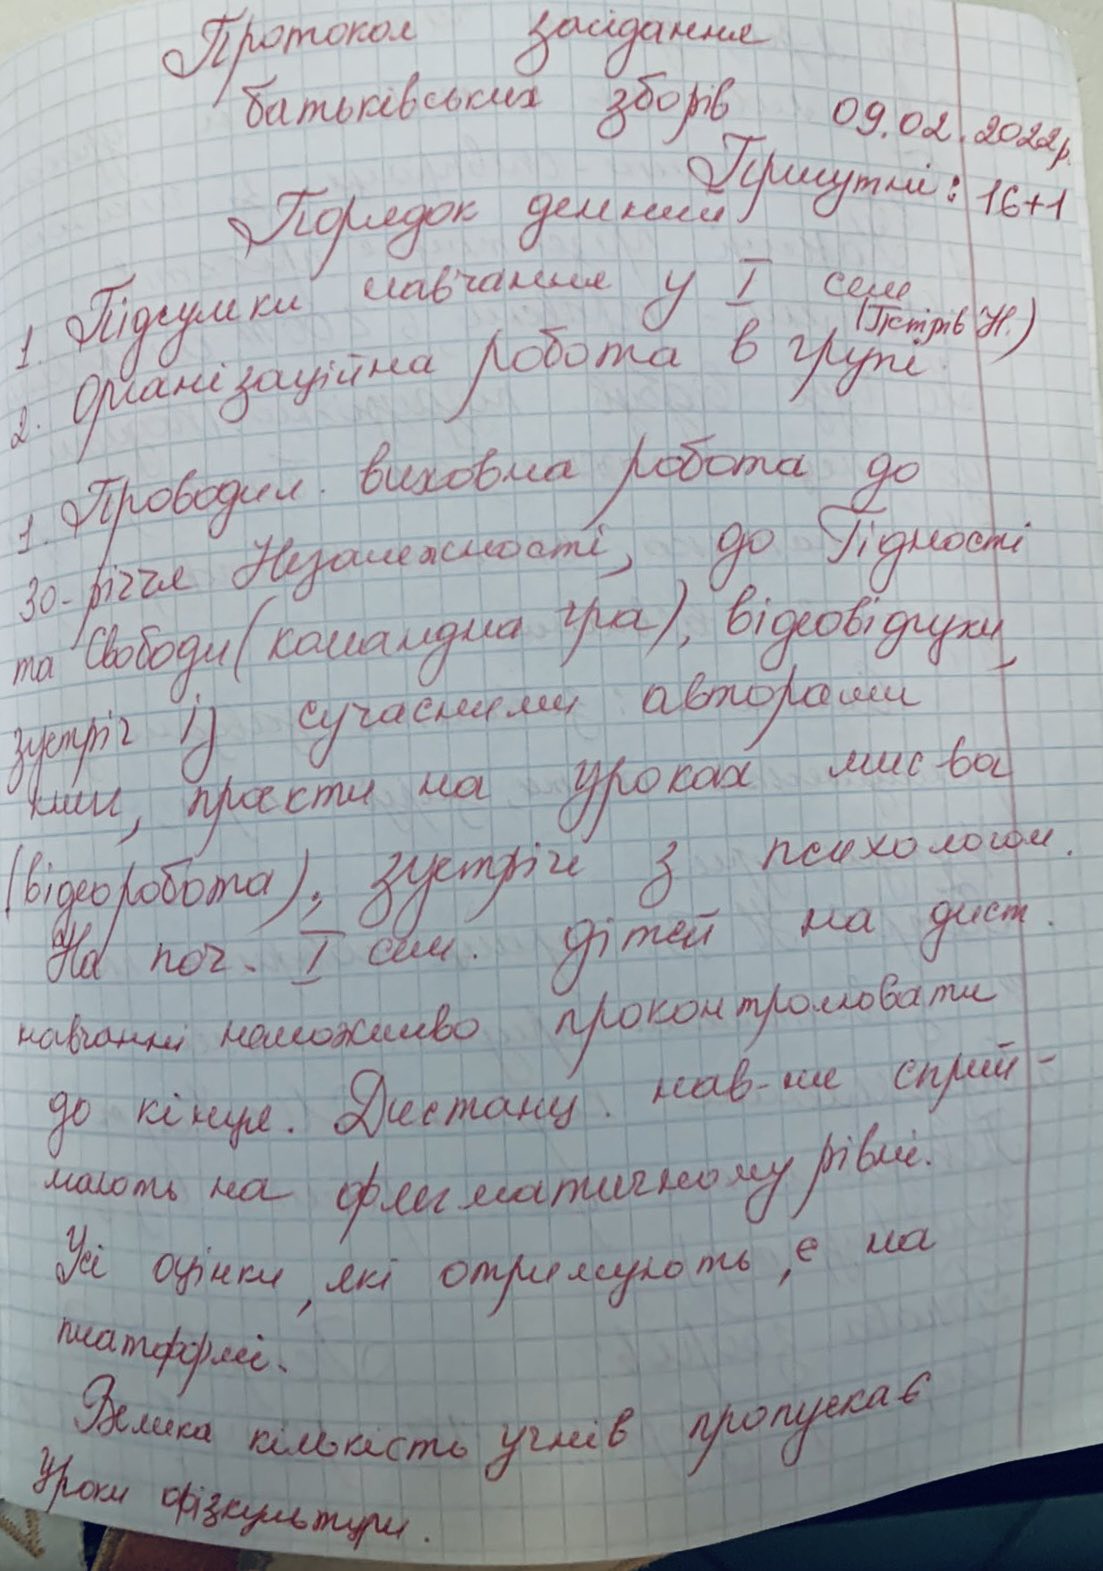 Протокол засідання
батьківських зборів 09.02.2022р.
Присутні: 16+1
Порядок денний
1. Підсумки навчання у І сем
(Петрів Н.)
2. Організаційна робота в групі.
1. Проводил. виховна робота до
30-річчя Незалежності, до Гідності
та Свободи (командна гра), відеовідгуки,
зустріч із сучасними авторами
ними, проєкти на уроках мис-ва
(відеоробота), зустріч з психологом.
На поч. І сем. дітей на дист.
навчанні неможливо проконтролювати
до кінця. Дистанц. нав-ня сприй-
мають на флегматичному рівні.
Усі оцінки, які отримують, є на
платформі.
Велика кількість учнів пропускає
уроки фізкультури.